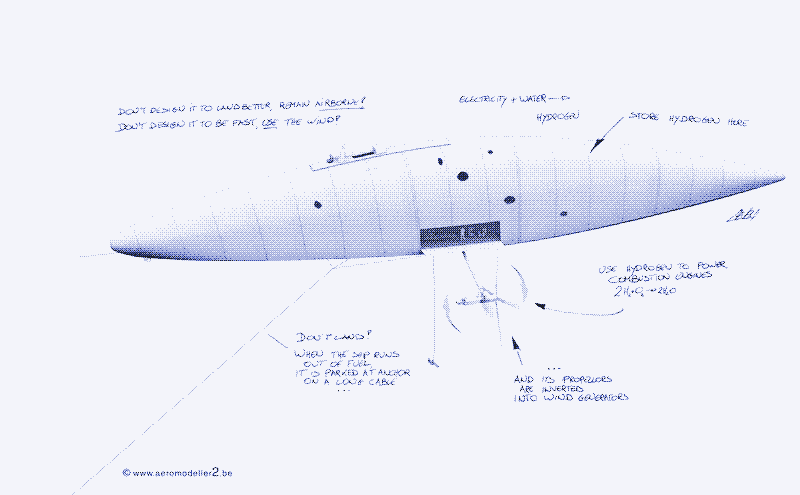 DON'T DESIGN IT TO LAND BETTER, REMAIN AIRBORNE!
DON'T DESIGN IT TO BE FAST, USE THE WIND!
ELECTRICITY + WATER →
HYDROGEN
STORE HYDROGEN HERE
USE HYDROGEN TO POWER
COMBUSTION ENGINES
2H₂+O₂→2H₂O
DON'T LAND!
WHEN THE SHIP RUNS
OUT OF FUEL,
IT IS PARKED AT ANCHOR
ON A LONG CABLE
...
...
AND ITS PROPELLORS
ARE INVERTED
INTO WIND GENERATORS
© www.aeromodeller2.be